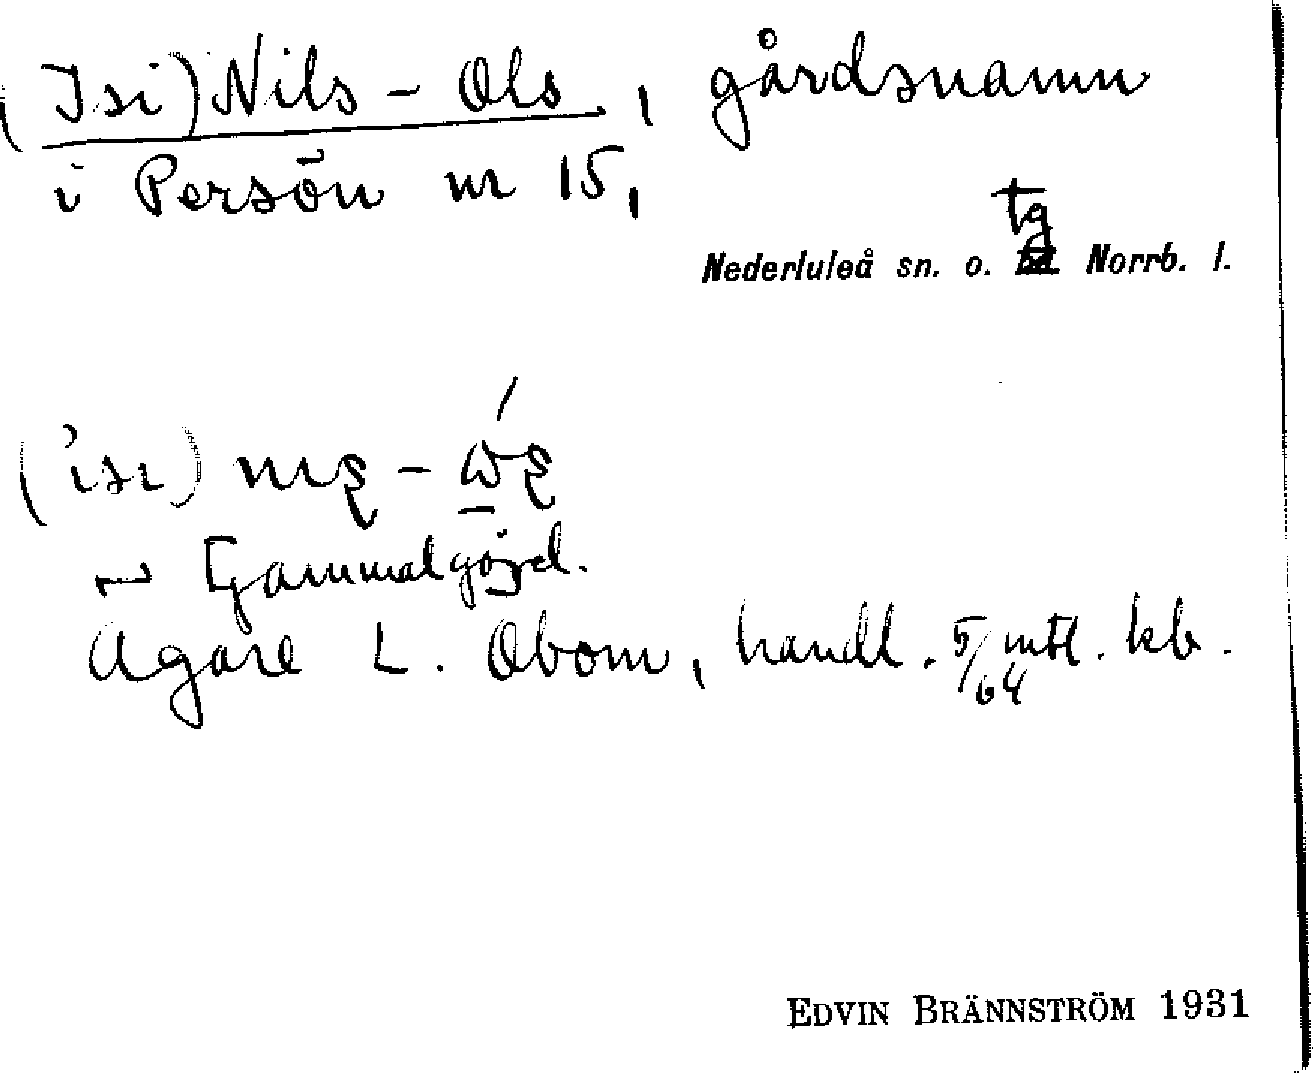 (Isi) Nils - Ols, gårdsnamn
i Persön nr 15,
tg
Nederluleå sn. o. Norrb. l.
~ Gammalgöjsd.
Ägare L. Obom, handl. 5/64 mtl. kb.
EDVIN BRÄNNSTRÖM 1931